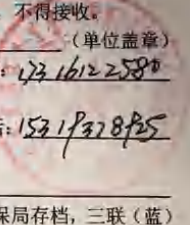 不得接收。
（单位盖章）
: 13316122580
: 15319378925
保局存档，三联（蓝）